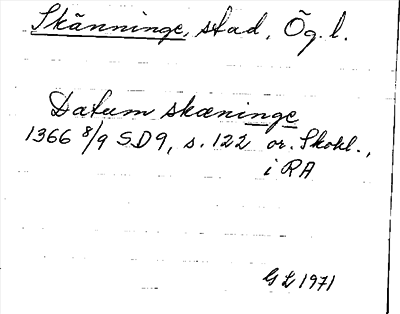 Skänninge, stad, Ög. l.
Datum skæninge
1366 8/9 SD9, s. 122 or. Skokl.,
i RA
GL 1971